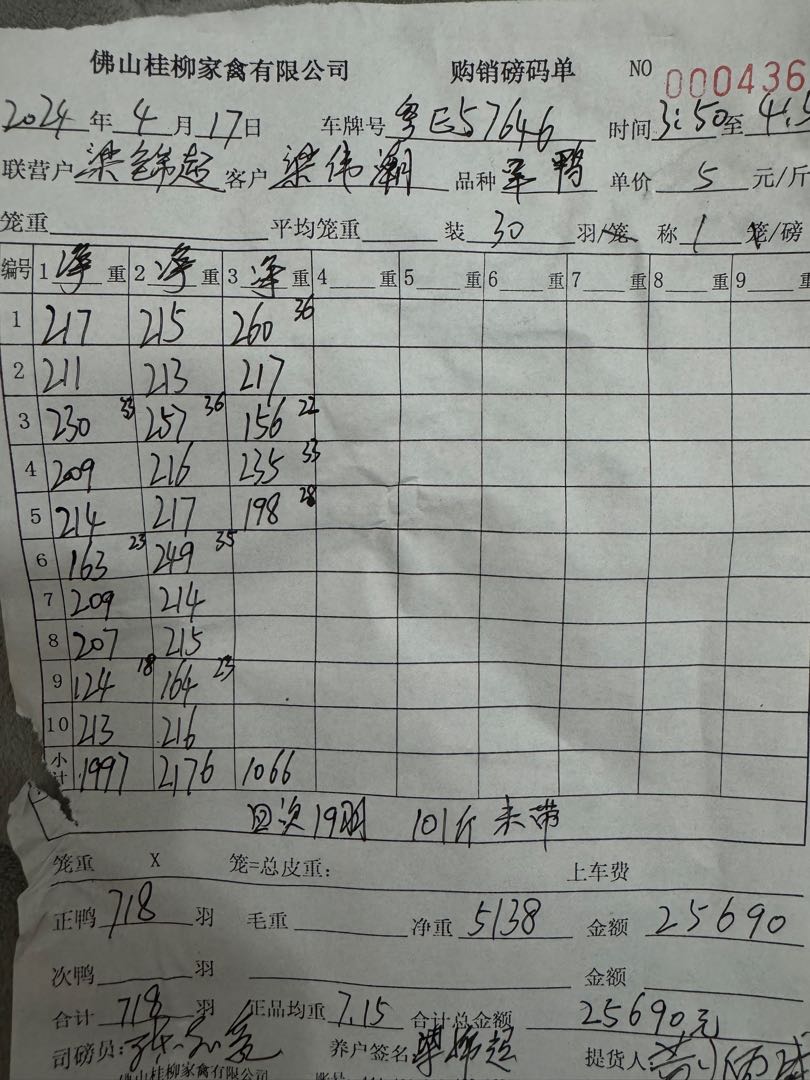 佛山桂柳家禽有限公司 购销磅码单 NO 000436
2024年4月17日 车牌号 粤E57646 时间 3:50至
联营户 梁锦超 客户 梁伟潮 品种 羊鸭 单价 5 元/斤
笼重 平均笼重 装 30 羽/笼 称 1 笼/磅
编号 1 净 重 2 净 重 3 净 重 4 重 5 重 6 重 7 重 8 重 9 重
1 217 215 260 36
2 211 213 217
3 230 33 257 36 156 22
4 209 216 235 33
5 214 217 198 28
6 163 23 249 35
7 209 214
8 207 215
9 124 18 164 23
10 213 216
小计 1997 2176 1066
次19羽 101斤 未带
笼重 X 笼=总皮重： 上车费
正鸭 718 羽 毛重 净重 5138 金额 25690
次鸭 羽 金额
合计 718 羽 正品均重 7.15 合计总金额 25690元
司磅员： 养户签名 梁锦超 提货人
佛山桂柳家禽有限公司